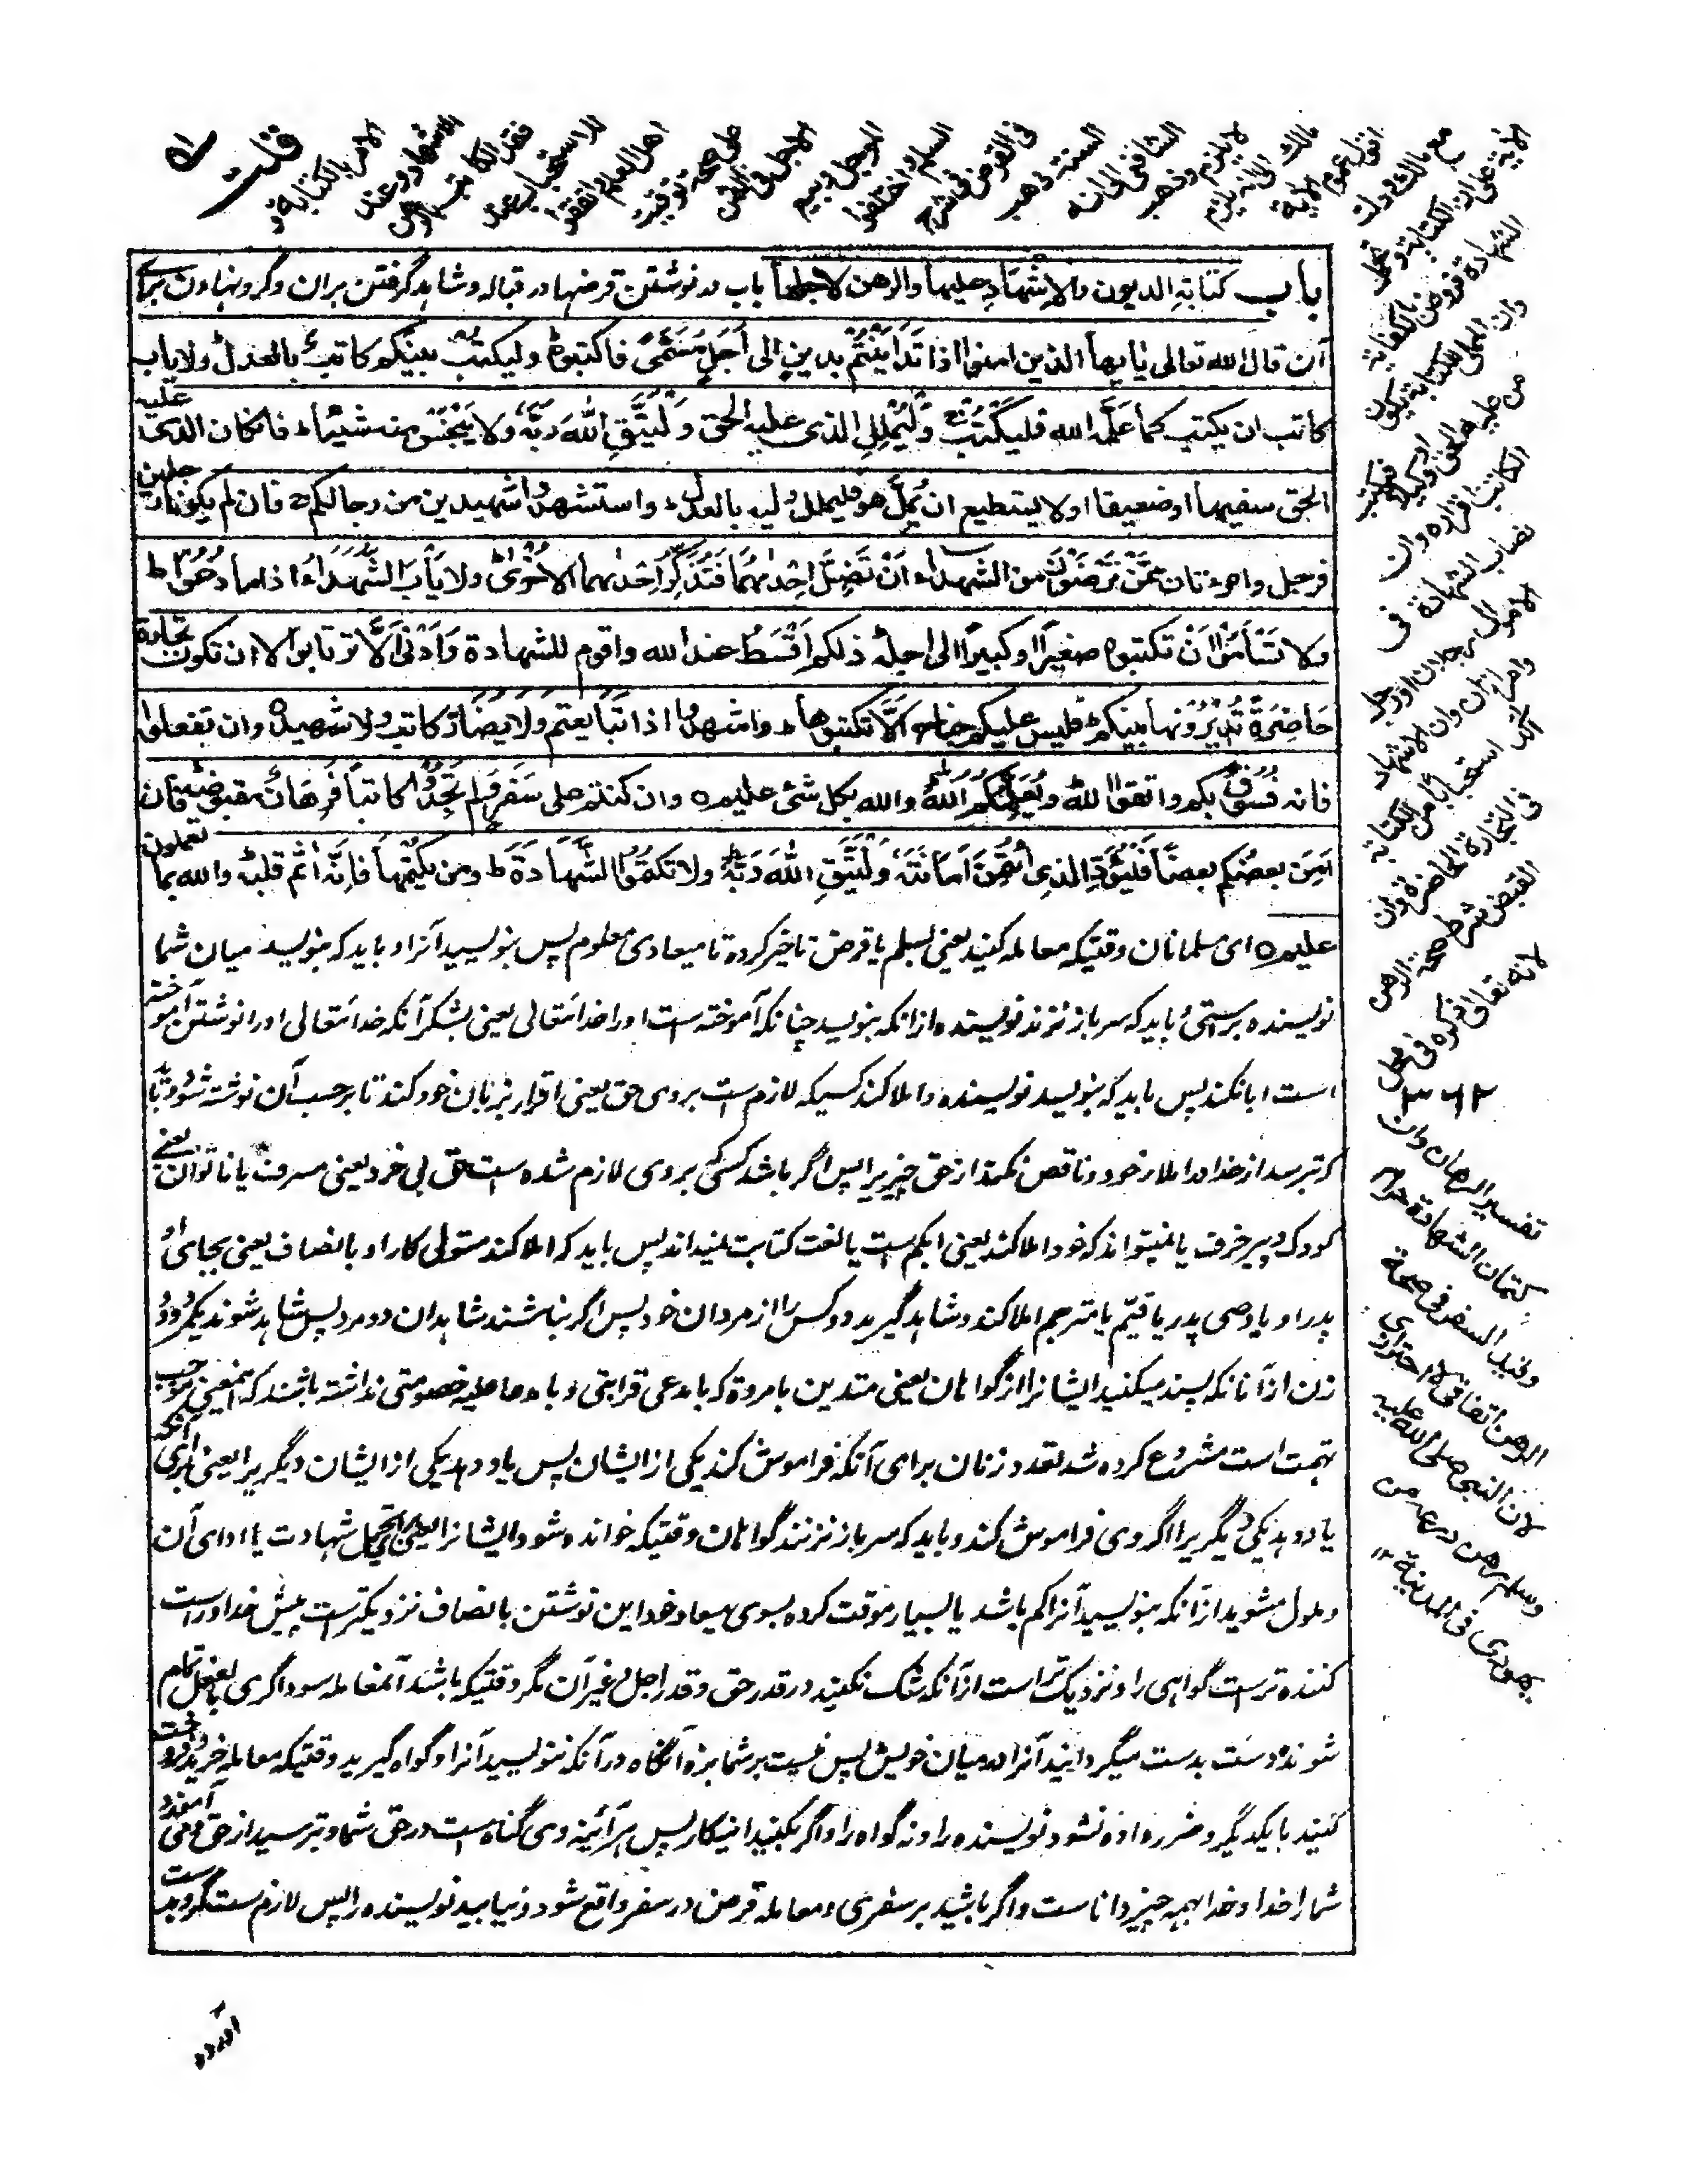 باب كتابةِ الديون والاِشهَادِ عليها والرهن لاجلها باب در نوشتن قرضها در قباله و شاهد گرفتن بران و گرو نهادن برای
آن قال الله تعالى يايها الذين امنوا اذا تَدَايَنْتُم بدين الى اَجَلٍ مُسَمًّى فاكتبوه وليكتب بينكم كاتب بالعدل ولا ياب
كاتب ان يكتب كما عَلَّمَه الله فليكتب وَلْيُمْلِلِ الذى عليه الحق وَلْيَتَّقِ اللهَ رَبَّهٗ ولا يَبْخَسْ منه شيئا فان كان الذى عليه
الحق سفيها او ضعيفا او لا يستطيع ان يُمِلَّ هو فليملل وليه بالعدل واستشهدوا شهيدين من رجالكم فان لم يكونا رجلين
فرجل وامرءتان مِمَّنْ تَرْضَوْنَ من الشهداء اَنْ تَضِلَّ اِحْدٰىهُمَا فَتُذَكِّرَ اِحْدٰىهما الاُخْرٰى ولا يَأْبَ الشُّهَدَاءُ اذا ما دُعُوْا
ولا تَسْأَمُوْا اَنْ تكتبوه صغيرًا او كبيرًا الى اجله ذلكم اَقْسَطُ عند الله واقوم للشهادة وَاَدْنٰى اَلَّا ترتابوا الا ان تكون تجارة
حَاضِرَةً تُدِيْرُوْنَها بينكم فليس عليكم جناح اَلَّا تكتبوها واشهدوا اذا تَبَايعتم ولا يضار كاتب ولا شهيد وان تفعلوا
فانه فُسُوْقٌ بكم واتقوا الله وَيُعَلِّمُكُمُ اللهُ والله بكل شئ عليم وان كنتم على سَفَرٍ وَلم تَجِدُوْا كاتبا فَرِهَانٌ مقبوضة فان
اَمِنَ بعضُكم بعضا فَلْيُؤَدِّ الذى اؤْتُمِنَ اَمَانَتَهٗ وَلْيَتَّقِ اللهَ رَبَّهٗ ولا تَكْتُمُوا الشَّهَادَةَ ومن يَكْتُمْهَا فَاِنَّهٗ اٰثِمٌ قلبه والله بما تعملون
عليم ای مسلمانان وقتیکه معامله کنید یعنی بسلم یا قرض تاخیر کرده تا میعادی معلوم پس بنویسید آنرا و باید که بنویسد میان شما
نویسنده براستی و باید که سر باز نزند نویسنده ازانکه بنویسد چنانکه آموخته است او را خدا تعالی یعنی بشکر آنکه خدا تعالی او را نوشتن آموخته
است ابا نکند پس باید که بنویسد نویسنده و املا کند کسیکه لازم است بروی حق یعنی اقرار بزبان خود کند تا بر حسب آن نوشته شود و باید
که بترسد از خدا در املا از خود و ناقص نکند از حق چیزیرا پس اگر باشد کسی که بروی لازم شده است حق بی خرد یعنی مسرف یا ناتوان یعنی
کودک و پیر خرفت یا نمیتواند که خود املا کند یعنی ابکم است یا لغت کتابت نمیداند پس باید که املا کند متولی کار او بانصاف یعنی بجای او
پدر او یا وصی پدر یا قیّم یا مترجم املا کند و شاهد گیرید دو کس را از مردان خود پس اگر نباشند شاهدان دو مرد پس شاهد شوند یکمرد و دو
زن از آنانکه پسند میکنید ایشانرا از گواهان یعنی متدین با مروة که با مدعی قرابتی و با مدعا علیه خصومتی نداشته باشند که اینمعنی موجب
تهمت است مشروع کرده شد تعدد زنان برای آنکه فراموش کند یکی از ایشان پس یاد دهد یکی از ایشان دیگریرا یعنی برای آنکه
یاد دهد یکی دیگریرا اگر وی فراموش کند و باید که سر باز نزنند گواهان وقتیکه خوانده شود ایشانرا یعنی برای تحمل شهادت یا ادای آن
و ملول مشوید از آنکه بنویسید آنرا کم باشد یا بسیار موقت کرده بسوی میعاد خود این نوشتن بانصاف نزدیکترست پیش خدا و راست
کننده ترست گواهی را و نزدیک تر است از آنکه شک نکنید در قدر حق و قدر اجل و غیر آن مگر وقتیکه باشد آنمعامله سوداگری بالفعل تمام
شونده دست بدست میگردانید آنرا در میان خویش پس نیست بر شما بزه آنگاه در آنکه ننویسید آنرا و گواه گیرید وقتیکه معامله خرید و فروخت
کنید با یکدیگر و ضرر داده نشود نویسنده را و نه گواه را و اگر بکنید اینکار پس هر آئینه وی گناه است در حق شما و بترسید از حق و می آموزد
شما را خدا و خدا بهمه چیز دانا است و اگر باشید بر سفری و معامله قرض در سفر واقع شود و نیابید نویسنده را پس لازم ست گرو بدست
آورده
قلت
الامر بالكتابة و
الاشهاد وعند
فقد الكاتب الرهن
للاستحباب عند
اهل العلم واتفقوا
على صحة توقيت
الاجل فى الثمن
السلم واختلفوا
فى القرض فى شرح
السنة ذهب
الشافعى الى انه
لا يلزم وذهب
مالك الى انه يلزم
اقول عموم الاية
مع مالك ودلت
الاية على ان الكتابة وتحمل
الشهادة فروض بالكفاية
وان المملى للكتابة يكون
من عليه الحق او وكيله فتكتب
الكاتب اقراره وان
نصاب الشهادة فى
الاموال رجلان او رجل
وامرأتان وان الاشهاد
اكد استحبابا من الكتابة
فى التجارة الحاضرة وان
القبض شرط صحة الرهن
لانه تعالى ذكره فى محل
تفسير الرهان وان
كتمان الشهادة حرام
وقيد السفر فى صحة
الرهن اتفاقى لا احترازى
لان النبى صلى الله عليه
وسلم رهن درعه من
يهودى فى المدينة ۱۲